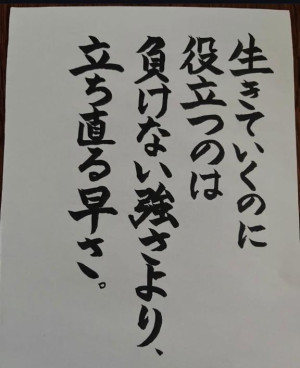 生きていくのに
役立つのは
負けない強さより、
立ち直る早さ。